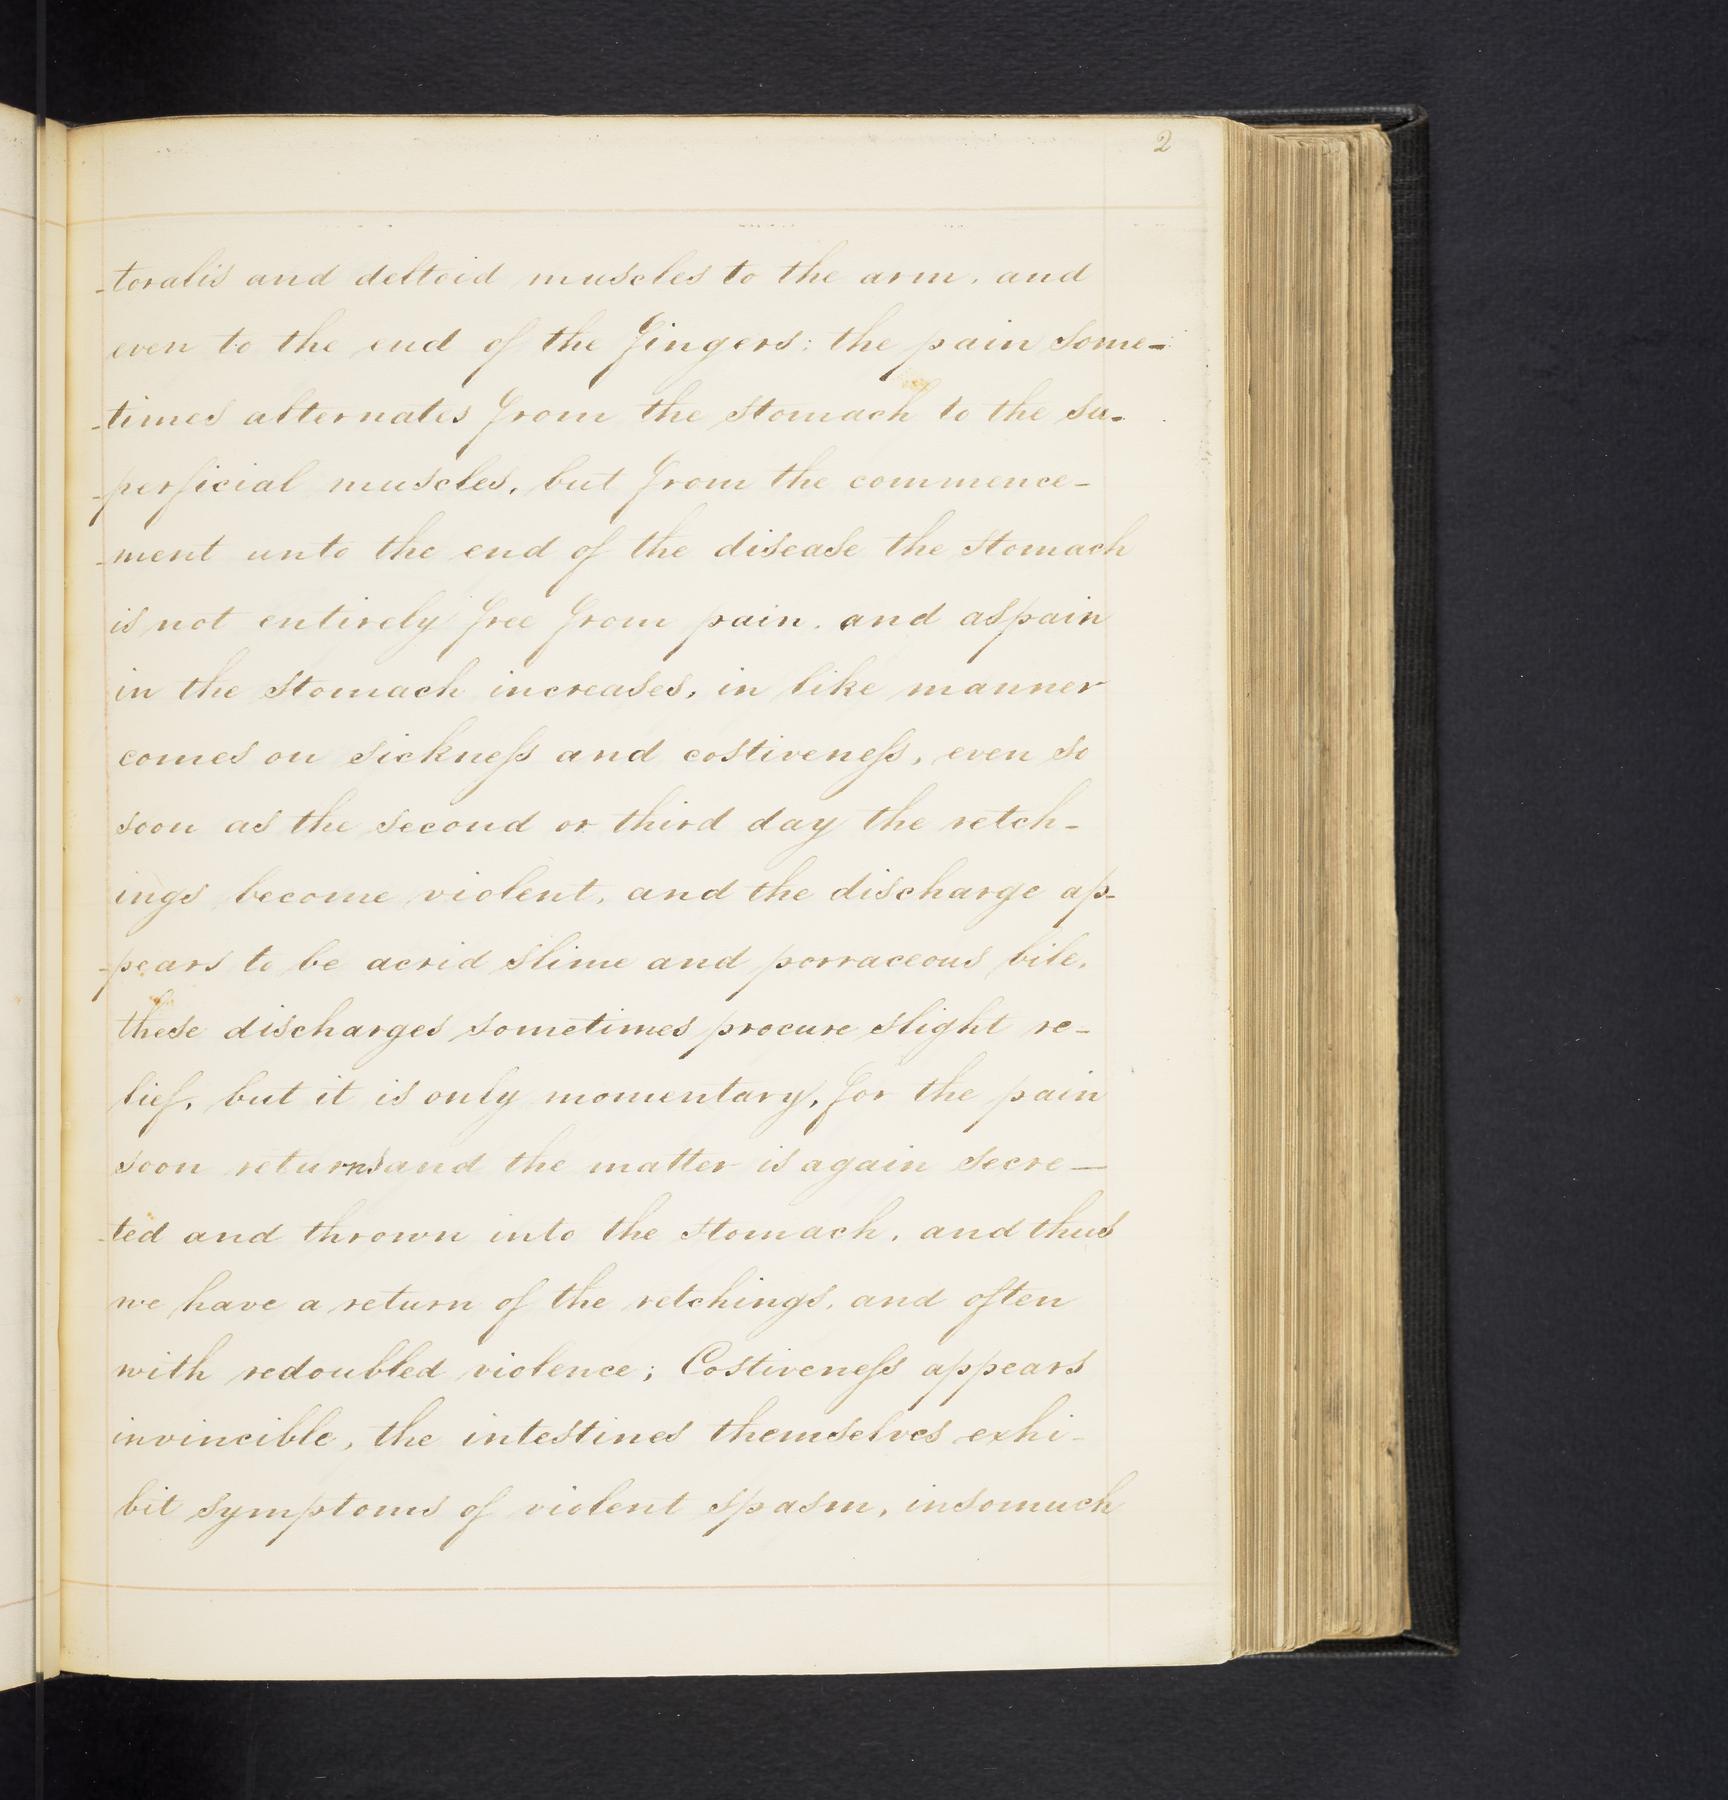 2
-toralis and deltoid muscles to the arm, and
even to the end of the fingers: the pain some-
-times alternates from the stomach to the su-
-perficial muscles, but from the commence-
-ment unto the end of the disease the stomach
is not entirely free from pain. and as pain
in the stomach increases, in like manner
comes on sickneſs and costiveneſs, even so
soon as the second or third day the retch-
ings become violent, and the discharge ap-
-pears to be acrid slime and porraceous bile,
these discharges sometimes procure slight re-
lief, but it is only momentary, for the pain
soon returns and the matter is again secre-
-ted and thrown into the stomach, and thus
we have a return of the retchings, and often
with redoubled violence; Costiveneſs appears
invincible, the intestines themselves exhi-
bit symptoms of violent spasm, insomuch